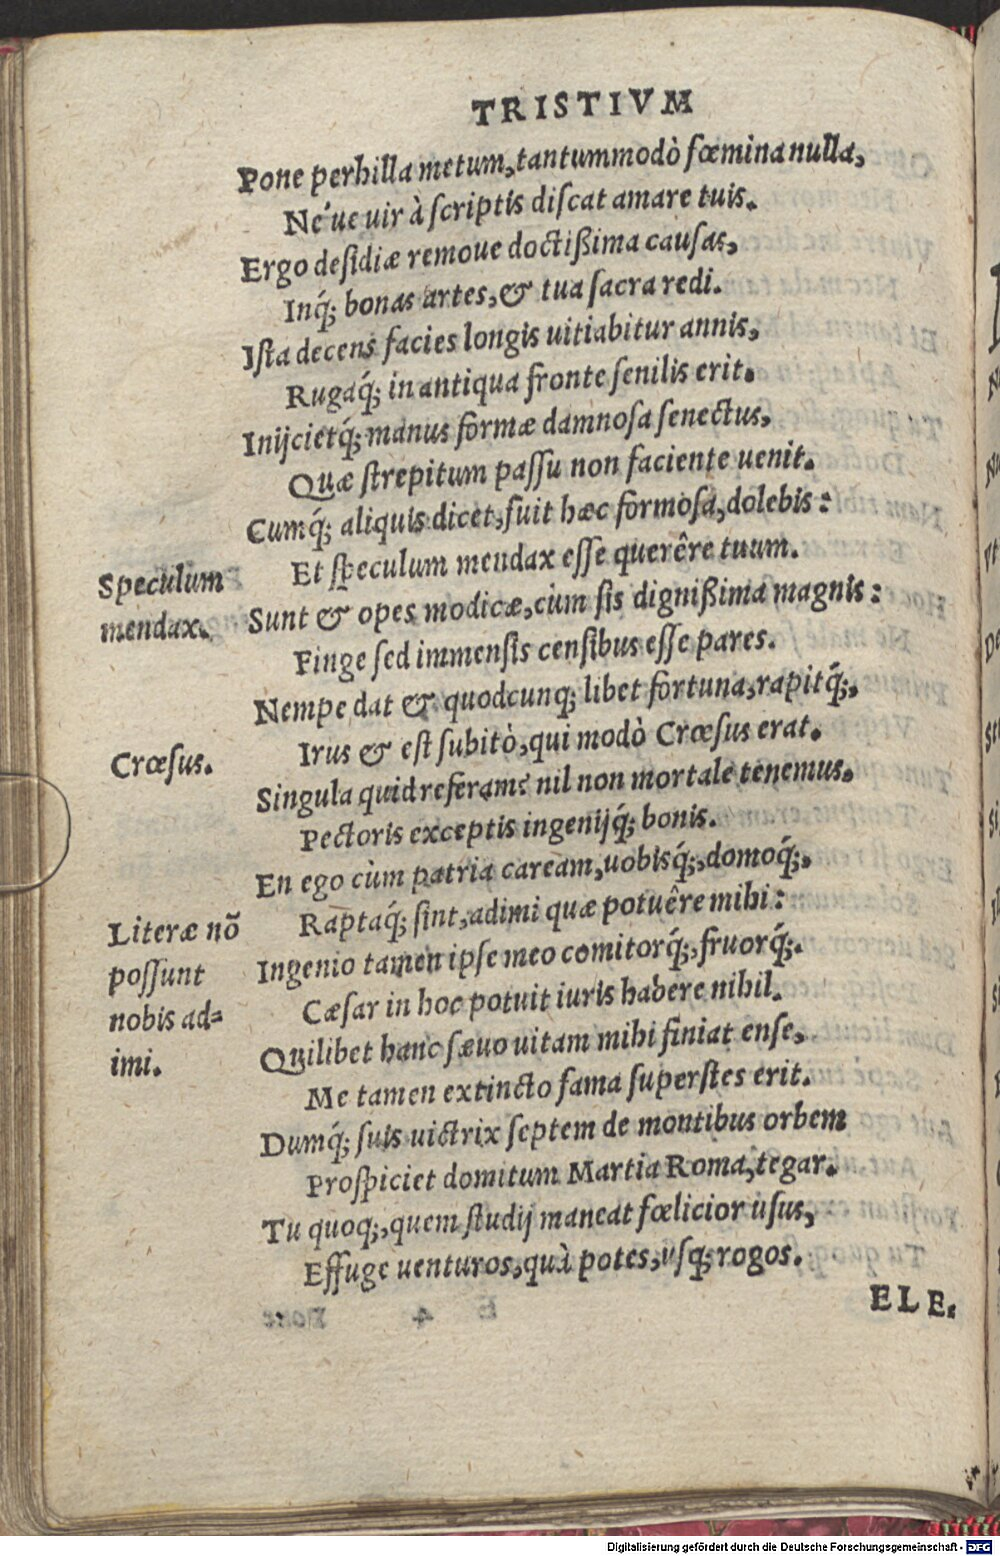 TRISTIVM
Pone perhilla metum, tantummodò fœmina nulla,
Ne'ue uir à scriptis discat amare tuis.
Ergo desidiæ remoue doctißima causas,
Inq́; bonas artes, & tua sacra redi.
Ista decens facies longis uitiabitur annis,
Rugaq́; in antiqua fronte senilis erit.
Inijcietq́; manus formæ damnosa senectus,
Quæ strepitum passu non faciente uenit.
Cumq́; aliquis dicet, fuit hæc formosa, dolebis:
Et speculum mendax esse querêre tuum.
Speculum
mendax.
Sunt & opes modicæ, cùm sis dignißima magnis:
Finge sed immensis censibus esse pares.
Nempe dat & quodcunq; libet fortuna, rapitq́;,
Irus & est subitò, qui modò Crœsus erat.
Crœsus.
Singula quid referam? nil non mortale tenemus.
Pectoris exceptis ingenijq́; bonis.
En ego cùm patria caream, uobisq́;, domoq́;,
Raptaq́; sint, adimi quæ potuêre mihi:
Literæ nõ
possunt
nobis ad=
imi.
Ingenio tamen ipse meo comitorq́;, fruorq́;.
Cæsar in hoc potuit iuris habere nihil.
Quilibet hanc sæuo uitam mihi finiat ense,
Me tamen extincto fama superstes erit.
Dumq́; suis uictrix septem de montibus orbem
Prospiciet domitum Martia Roma, legar.
Tu quoq;, quem studij maneat fœlicior usus,
Effuge uenturos, quà potes, usq; rogos.
ELE.
Digitalisierung gefördert durch die Deutsche Forschungsgemeinschaft - DFG